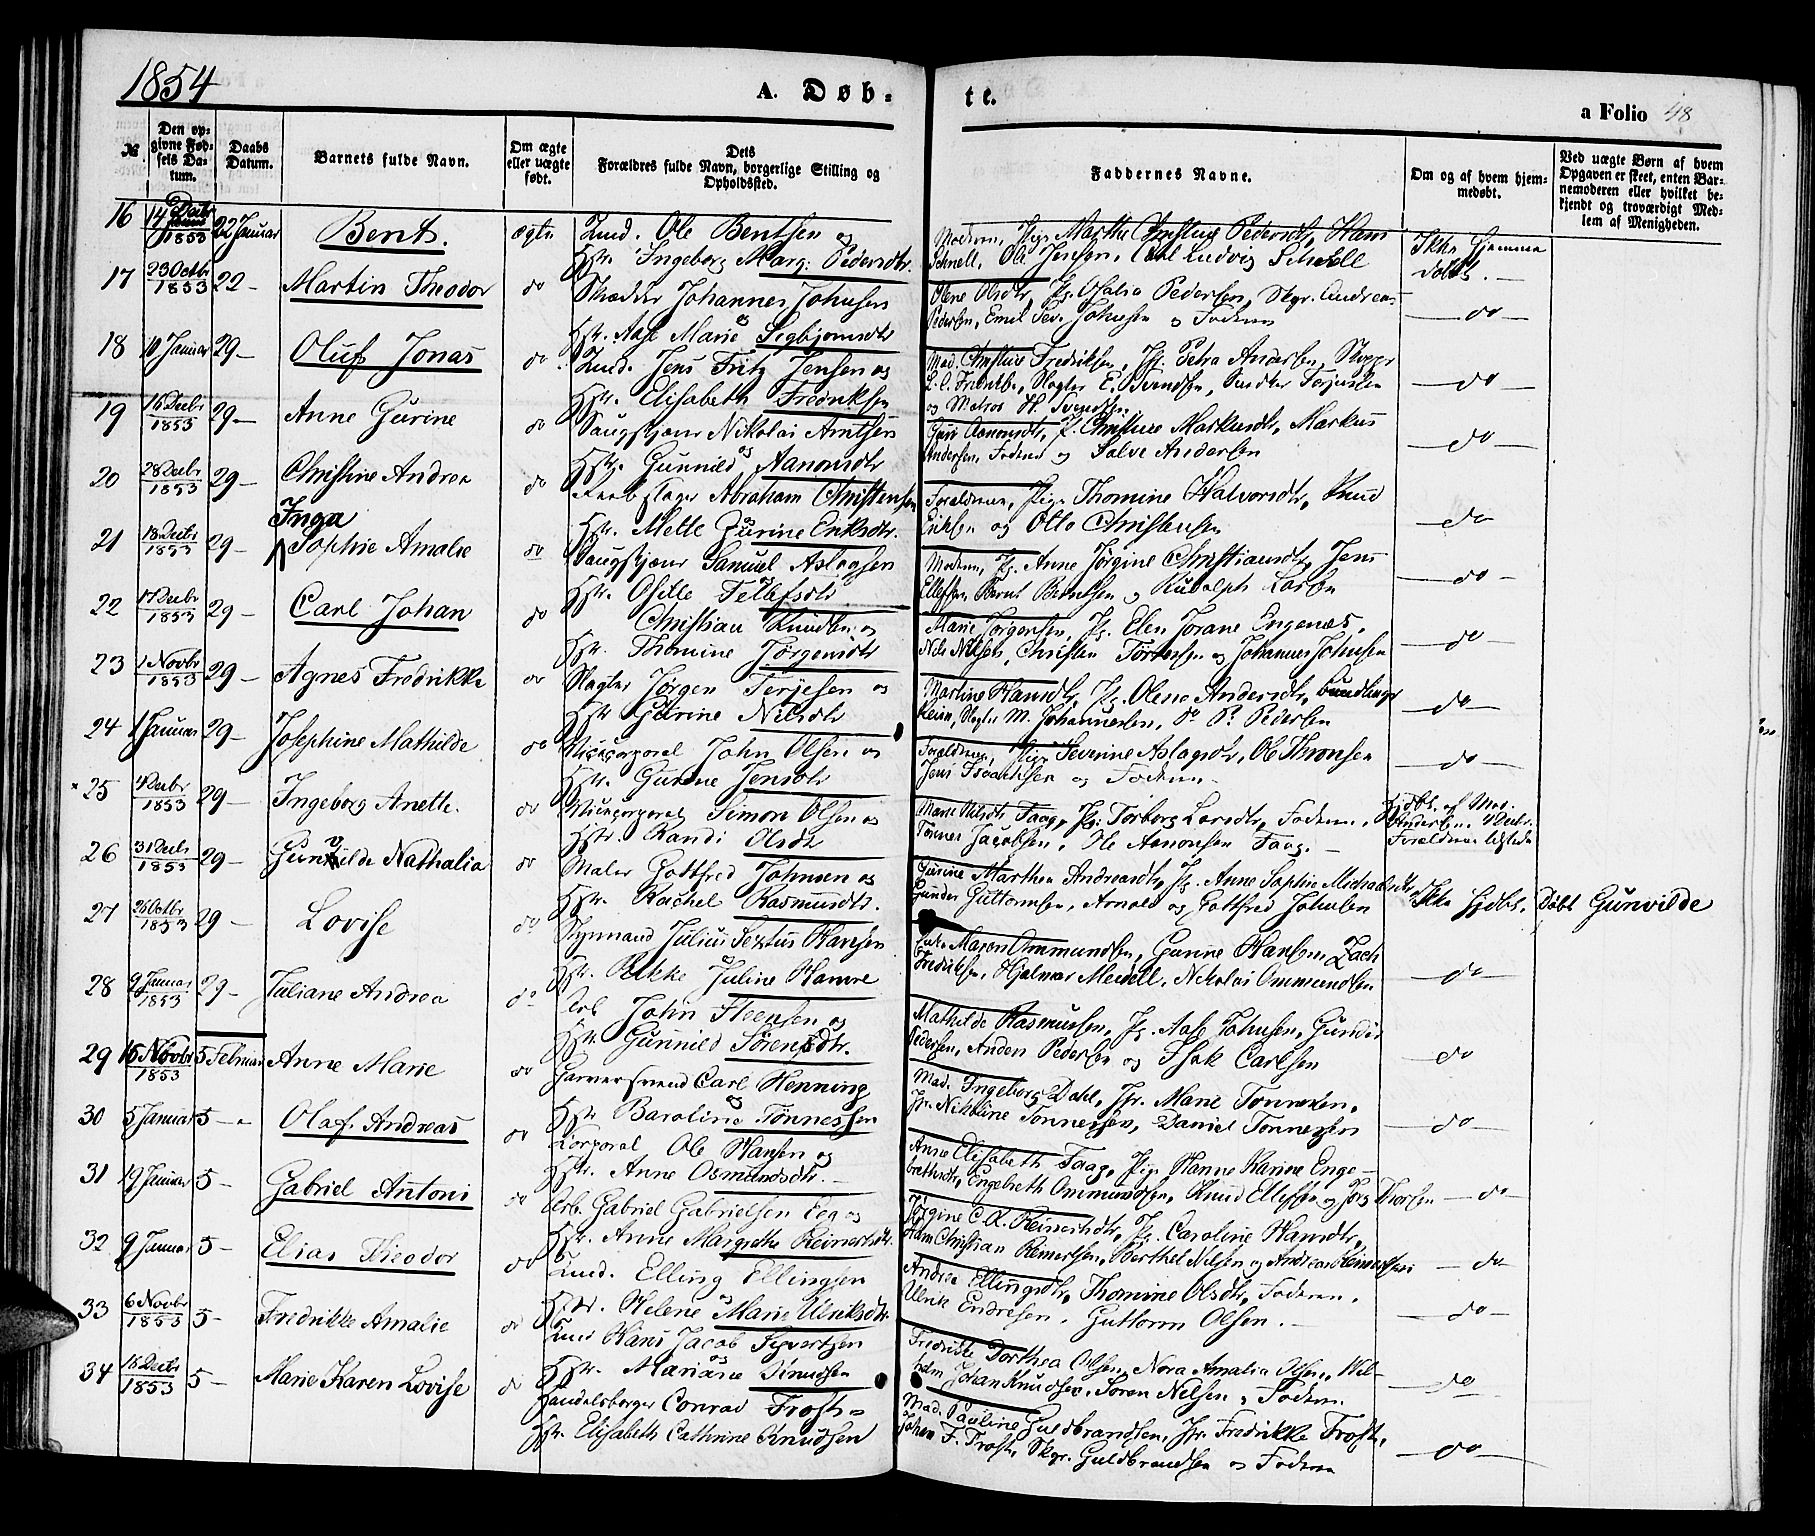 1854
A. Døb-
te.
a Folio 48
№
Den op-
givne Fød-
sels Da-
tum.
Daabs
Datum.
Barnets fulde Navn.
Om ægte
eller uægte
født.
Dets
Forældres fulde Navn, borgerlige Stilling og
Opholdssted.
Faddernes Navne.
Om og af hvem hjem-
medøbt.
Ved uægte Børn af hvem
Opgaven er skeet, enten Bar-
nemoderen eller hvilket be-
kjendt og troværdigt Med-
lem af Menigheden.
16 14 Decbr 1853 22 Januar Bent. ægte Ole Bentsen og
Ingeborg Marg: Pedersdtr.
Marthe Christine Pedersdtr, Hans
Schnell, Ole Jensen, Carl Ludvig Schnell
Ikke hjemme
døbt.
17 23 Octbr 1853 22 - Martin Theodor do Skrædder Johannes Johnsen og
Aase Marie Segbjørnsdtr
Olene Olsdtr, Osalia Pedersen, Skpr. Andreas
Pedersen, Emil Johnsen og Faderen
do
18 10 Januar 29 - Oluf Jonas do Jens Fritz Jensen og
Elisabeth Fredriksen
Mad. Christine Fredriksen, Petra Andersen,
do
19 16 Decbr 1853 29 - Anne Gurine do Nikolai Arntsen og
Gunnild Aanonsdtr
og Matros H. Svendsen
Guri Aanonsdtr, P. Christine Markusdtr, Markus
Andersen, Faderen og Salve Andersen
do
20 28 Decbr 1853 29 - Christine Andrea do Abraham Christensen og
Mette Gurine Eriksdtr.
Forældrene, Pige Thomine Halvorsdtr, Knud
Eriksen og Otto Christensen
do
21 18 Decbr 1853 29 - Inga
Sophie Amalie do Samuel Aslagsen og
Osille Tellefsdtr
Moderen, Anne Jørgine Christiansdtr, Jens
Ellefsen Bernt Berntsen og Rudolph Larsen
do
22 17 Decbr 1853 29 - Carl Johan do Christian Knudsen og
Thomine Jørgensdtr
Marie Jørgensen, Elen Jorane Engenæs,
Nils Nilsen, Christen Tørresen og Johannes Johnsen
do
23 1 Novbr 1853 29 - Agnes Fredrikke do Slagter Jørgen Terjesen og
Gurine Nilsdtr
Martine Hansdtr, Olene Andersdtr,
Slagter M. Johannesen, do P. Pedersen
do
24 1 Januar 29 - Josephine Mathilde do Vicecorporal John Olsen og
Gurine Jensdtr
Forældrene, Pige Severine Aslagsdtr, Ole Thronsen
Jens Isaachsen og Faderen
do
25 4 Decbr 1853 29 - Ingeborg Anette. do Vicecorporal Simon Olsen og
Randi Olsdtr
Marie Nilsdtr Faag, Torborg Larsdtr, Faderen,
Tønnes Jacobsen, Ole Aanonsen Faag.
Hjdbt. af Mad.
Andersen 4 Decbr.
Forældrene
26 31 Decbr 1853 29 - Gunvilde Nathalia do Maler Gottfred Johnsen og
Rachel Rasmusdtr.
Gurine Marthea Andreasdtr, Anne Sophie Michaelsdtr,
Gunder Guttormsen, Arnold og Gottfred Johnsen
Ikke hjdbt. Døbt Gunvilde
27 26 Octbr 1853 29 - Lovise do Julius Sextus Hansen og
Juline Hamre
Maren Ommundsen, Gurine Hansen, Zach
Fredriksen, Hjalmar Meidell, Nikolai Ommundsen
do
28 9 Januar 1853 29 - Juliane Andrea do Arb John Steensen og
Gunnild Sørensdtr.
Mathilde Rasmussen, Aase Johnsen, Gunder
Pedersen, Anders Pedersen og Isak Carlsen
do
29 15 Novbr 1853 5 Februar Anne Marie do Garversvend Carl Henning og
Baroline Tønnessen
Mad. Ingeborg Dahl, Jfr. Marie Tønnesen,
Jfr. Nikoline Tønnessen, Daniel Tønnessen
do
30 5 Januar 5 - Olaf. Andreas do Corporal Ole Hansen og
Anne Osmundsdtr.
Anne Elisabeth Faag, Pige Hanne Karine Enge-
brethsdtr, Engebreth Ommundsen, Knud Ellefsen og Jørg Thorsen
do
31 19 Januar 5 - Gabriel Antoni do Arb. Gabriel Gabrielsen Eeg og
Anne Margrethe Reinertsdtr.
Jørgine C. R. Reinertsdtr, Caroline Hansdtr,
Hans Christian Reinertsen, Berthel Nilsen og Andreas Reinertsen
do
32 9 Januar 5 - Elias Theodor do Elling Ellingsen og
Helene Marie Ulriksdtr
Andrea Ellingsdtr, Thomine Olsdtr, Faderen,
Ulrik Endresen, Guttorm Olsen.
do
33 6 Novbr 1853 5 - Fredrikke Amalie do Hans Jacob Syvertsen og
Mariane Knudsen
Fredrikke Dorthea Olsen, Nora Amalia Olsen, Wil-
helm Johan Knudsen, Søren Nilsen, Faderen
do
34 18 Decbr 1853 5 - Marie Karen Lovise do Handelsborger Conrad Frost og
Elisabeth Cathrine Knudsen
Mad. Pauline Guldbrandsen, Jfr. Fredrikke Frost,
Johan F. Frost, Skpr. Guldbrandsen og Faderen
do